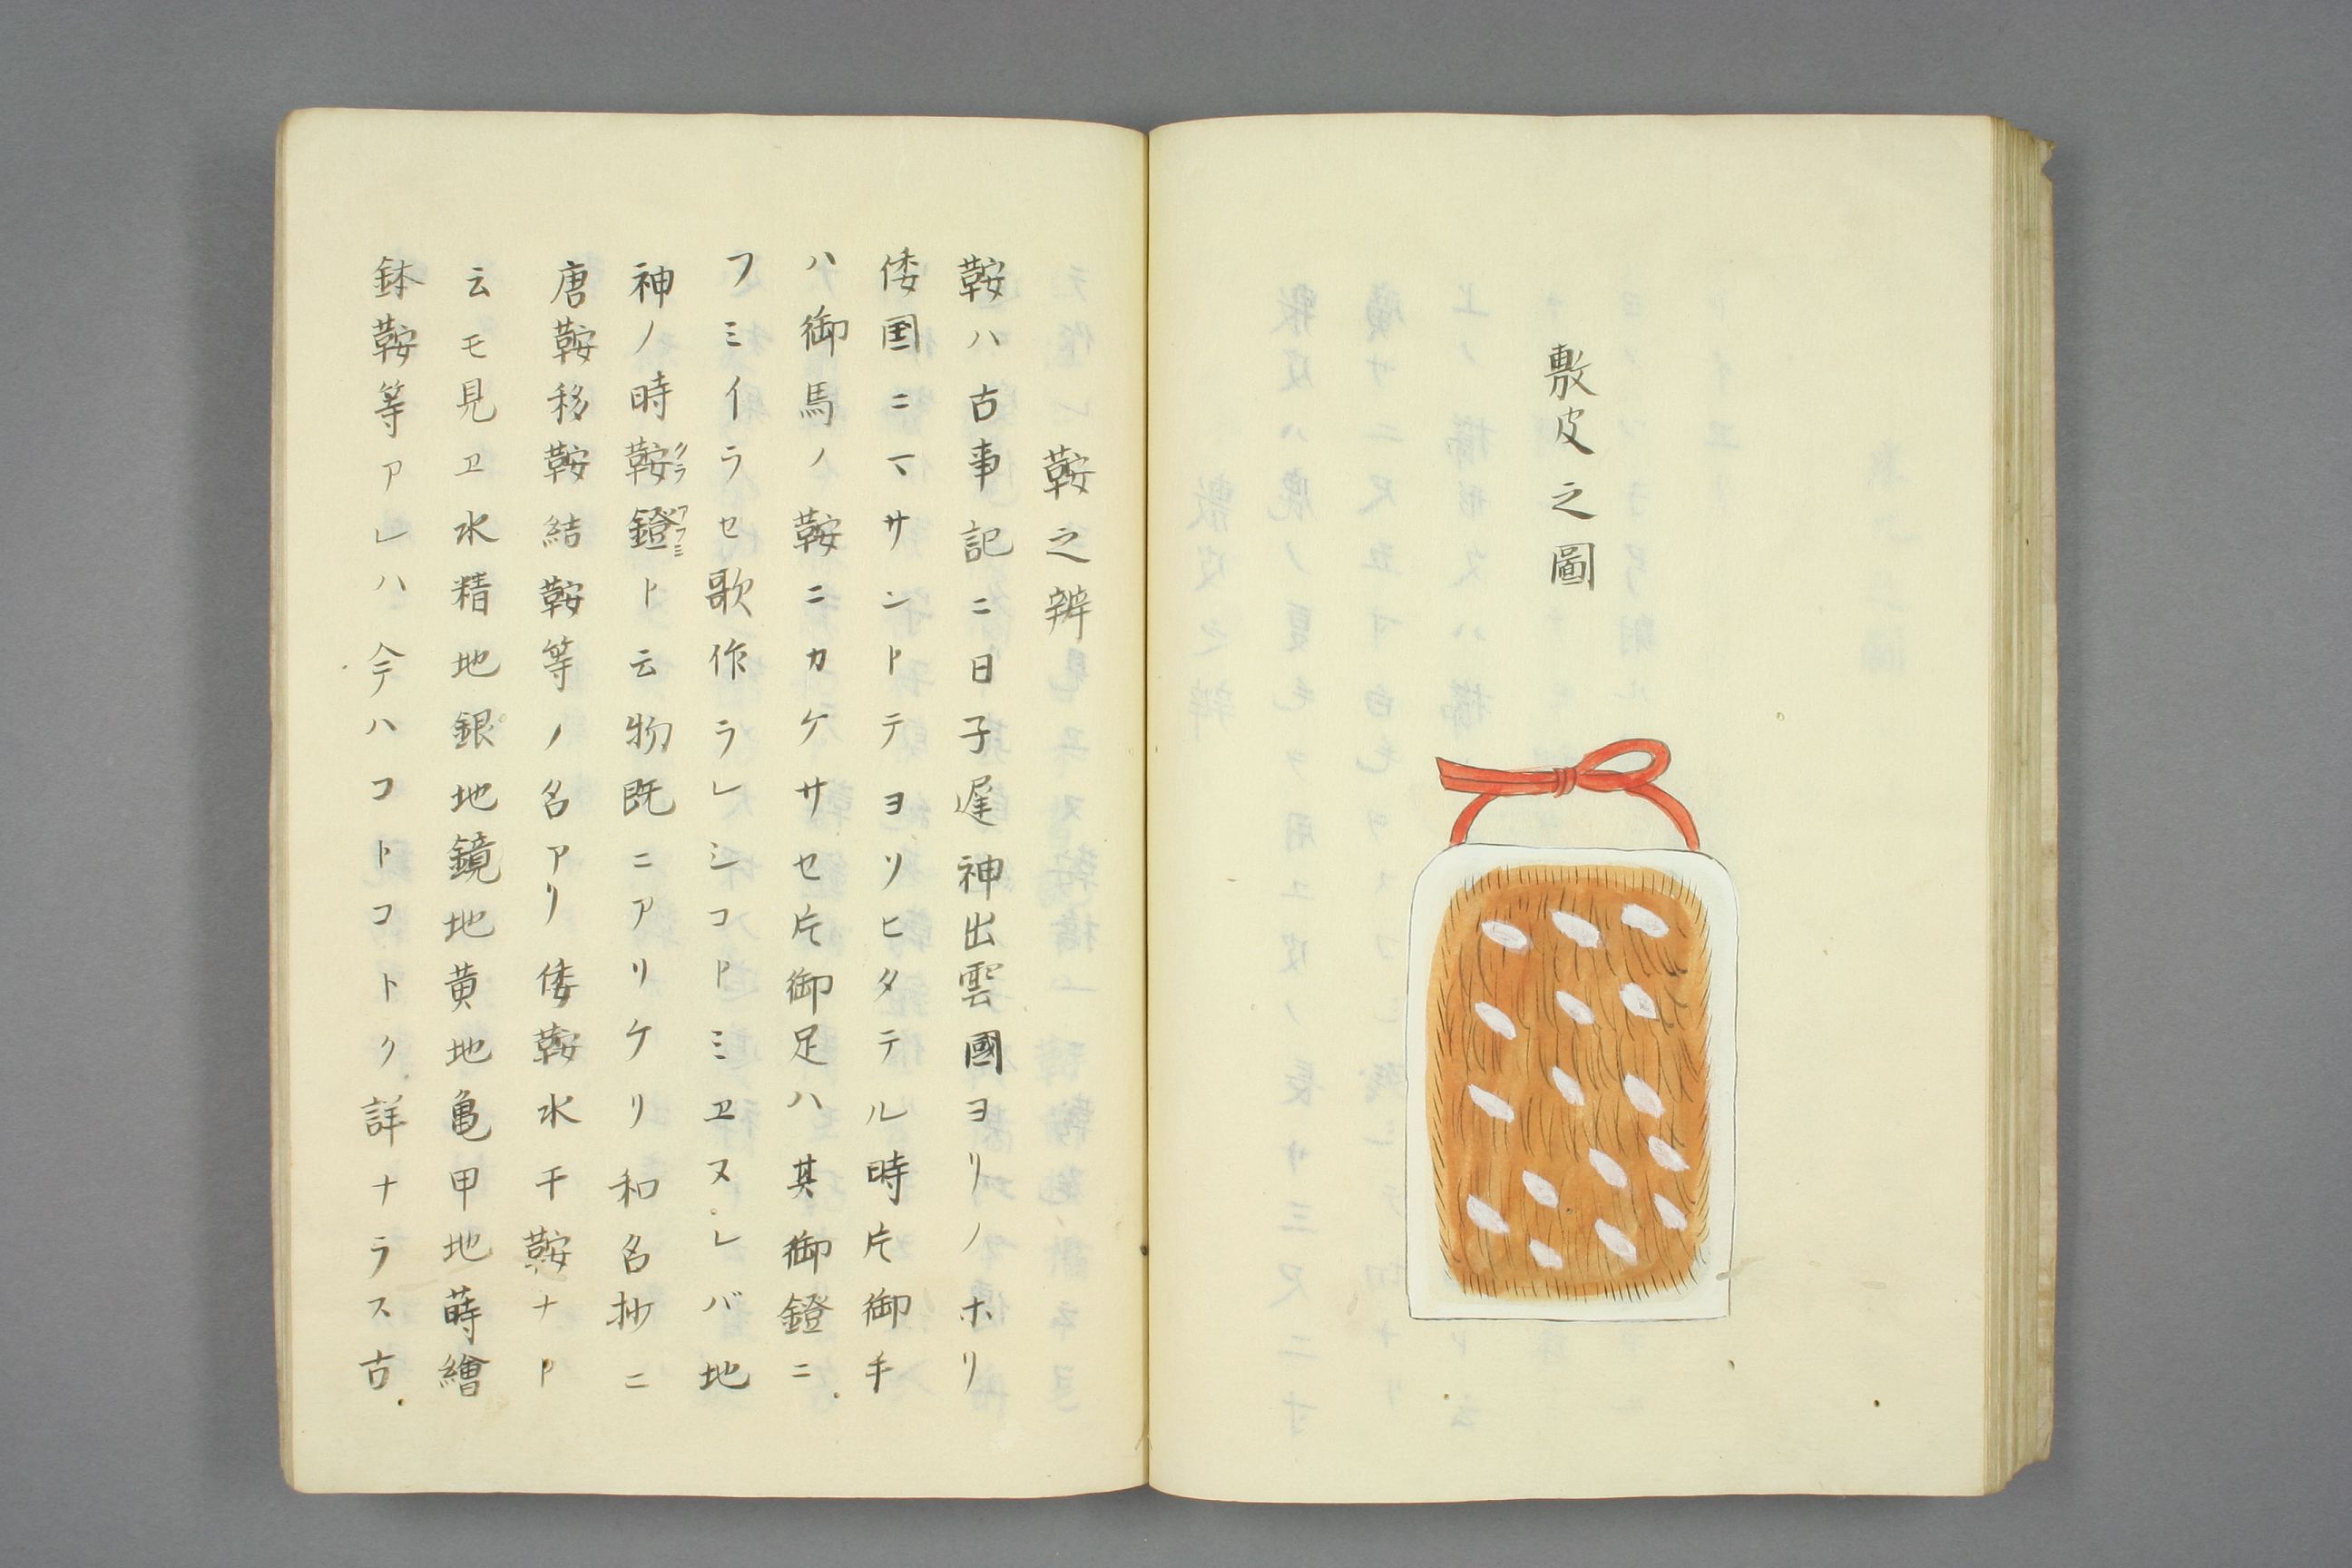 敷皮之圖
鞍之辨
鞍ハ古事記ニ日子遅神出雲國ヨリノホリ
倭国ニマサントテヨソヒタテル時片御手
ハ御馬ノ鞍ニカケサセ片御足ハ其御鐙ニ
フミイラセ歌作ラレシコトミヱヌレバ地
神ノ時鞍クラ鐙アフミト云物既ニアリケリ和名抄ニ
唐鞍移鞍結鞍等ノ名アリ倭鞍水干鞍ナト
云モ見ヱ水精地銀地鏡地黄地亀甲地蒔繪
鉢鞍等アレハ今ハコトコトク詳ナラス古